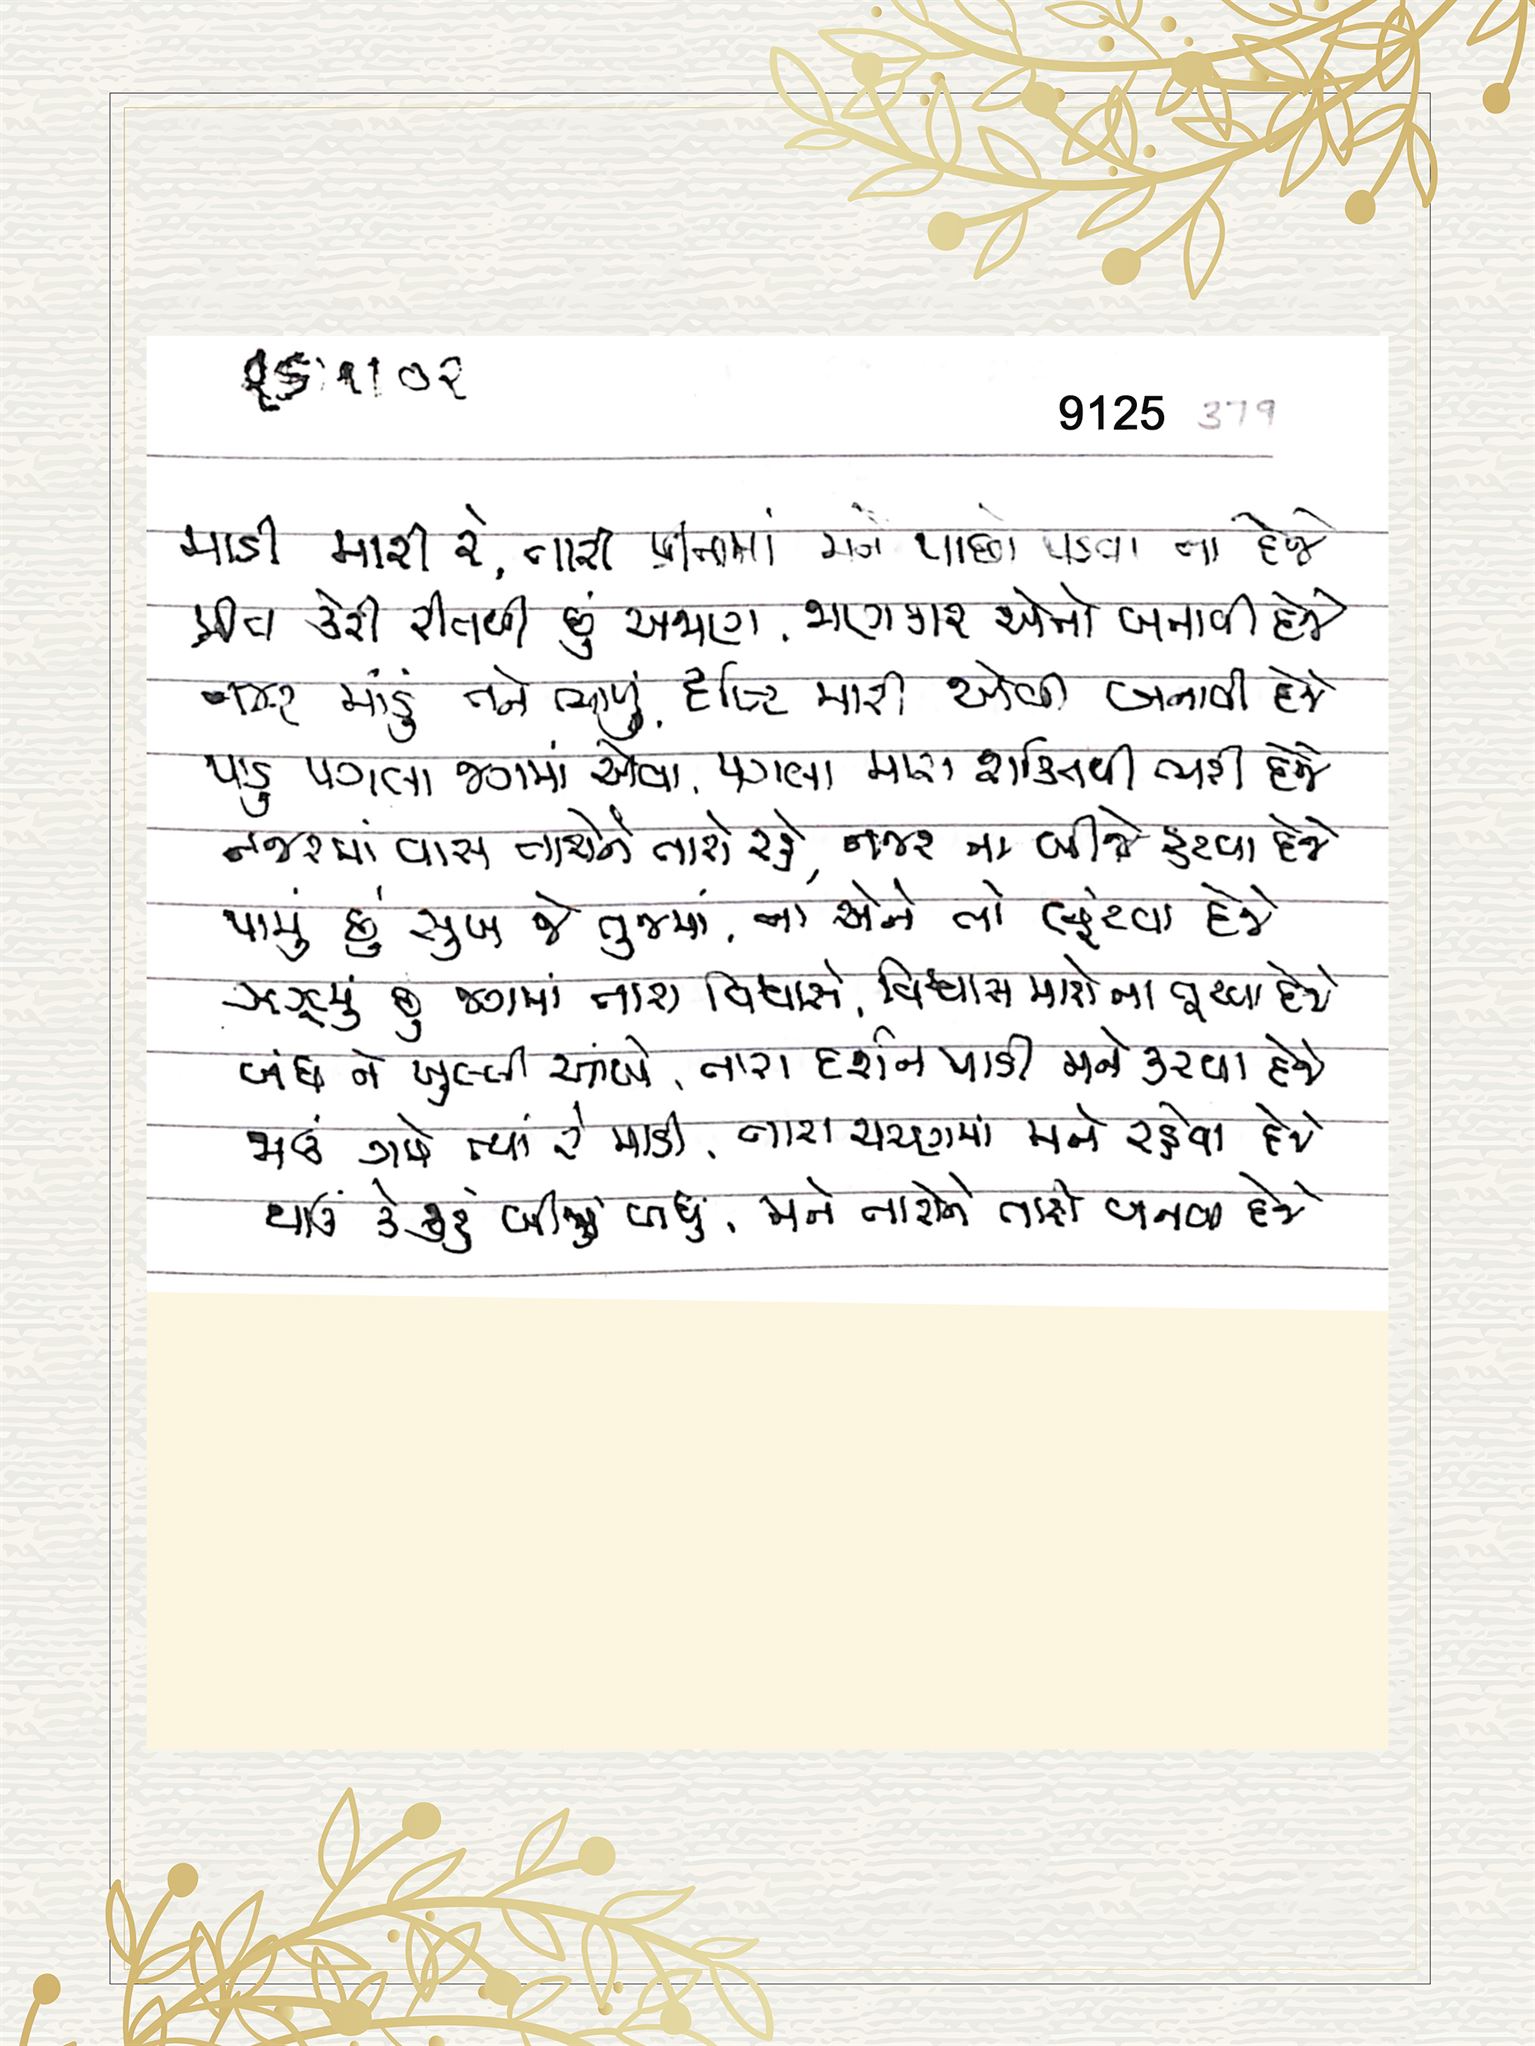 ૨૬।૧।૦૨
9125 379
માડી મારી રે, તારી પ્રીતમાં મને પાછો પડવા ના દેજે
પ્રીત કેરી રીતથી છું અજાણ, જાણકાર એનો બનાવી દેજે
નજર માંડું તને ભાળું, દૃષ્ટિ મારી એવી બનાવી દેજે
પાડુ પગલા જગમાં એવા, પગલા મારા શક્તિથી ભરી દેજે
નજરમાં વાસ તારોને તારો રહે, નજર ના બીજે ફરવા દેજે
પામું છું સુખ જે તુજમાં, ના એને તો લૂંટવા દેજે
ઝઝૂમું છું જગમાં તારા વિશ્વાસે, વિશ્વાસ મારો ના તૂટવા દેજે
બંધ ને ખુલ્લી આંખે, તારા દર્શન માડી મને કરવા દેજે
જાઉં ગમે ત્યાં રે માડી, તારા ચરણમાં મને રહેવા દેજે
થાઉં કે કહું બીજું બધું, મને તારોને તારો બનવા દેજે